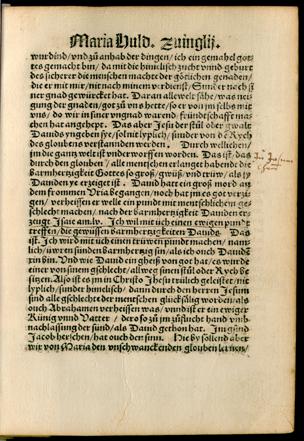 Maria Huld. Zuinglij.
wurdind / vnd zů anhab der dingen / ich ein gemahel got
tes gemacht bin / da mit die himelisch zucht vnnd geburt
des sicherer die menschen machet der götlichen genaden /
die er mit mir / nit nach minem verdienst / Sund er nach si
ner gnad gewürcket hat. Daran allwelt sähe / was nei
gung der gnaden / got zů vns hette / so er von jm selbs mit
vns / do wir in siner vngnad warend / fründtschafft ma
chen hat angehept. Das aber Jesu der stůl oder gwalt
Dauids
des gloubens verstanden werden. Durch welichen /
jm die gantz welt ist vnderworffen worden. Das ist / das
durch den glouben / alle menschen erlanget habend die
barmhertzigkeit Gottes so groß / gwüß / vnd trüw / als sy
Dauiden ye erzeiget ist. Dauid hatt ein groß mord an
dem frommen Vria begangen / noch hat jm es got verzi
gen / verheissen er welle ein pündt mit menschlichem ge
schlecht machen / nach der barmhertzigkeit Dauiden er
zeugt Isaie am lv. Ich wil mit üch einen ewigen pündt
treffen / die gewüssen barmhertzigkeiten Dauids. Das
ist. Ich wird mit üch einen trüwen pündt machen / nam
lich / üweren sünden barmhertzig sin / als ich ouch Dauid
xin bin. Vnd wie Dauid ein gheiß von got hat / es wird e
einer von sinem gschlecht / allweg sinen stůl oder Rych be
sitzen. Also ist es jm in Christo Jhesu
lyblich / sunder himelisch / dann durch den herren Jesum
sind alle gschlecht der mentschen glücksälig worden / als
ouch Abrahamen verheissen was / vnnd ist er ein ewiger
Künig vnnd Vatter / dero so zů jm zůflucht hand vmb
nachlassung der sünd / als Dauid gethon hat. Im gsind
Jacob herschen / hat ouch der sinn. Hie by sollend aber
wir von Maria den vnschwanckenden glouben lernen /